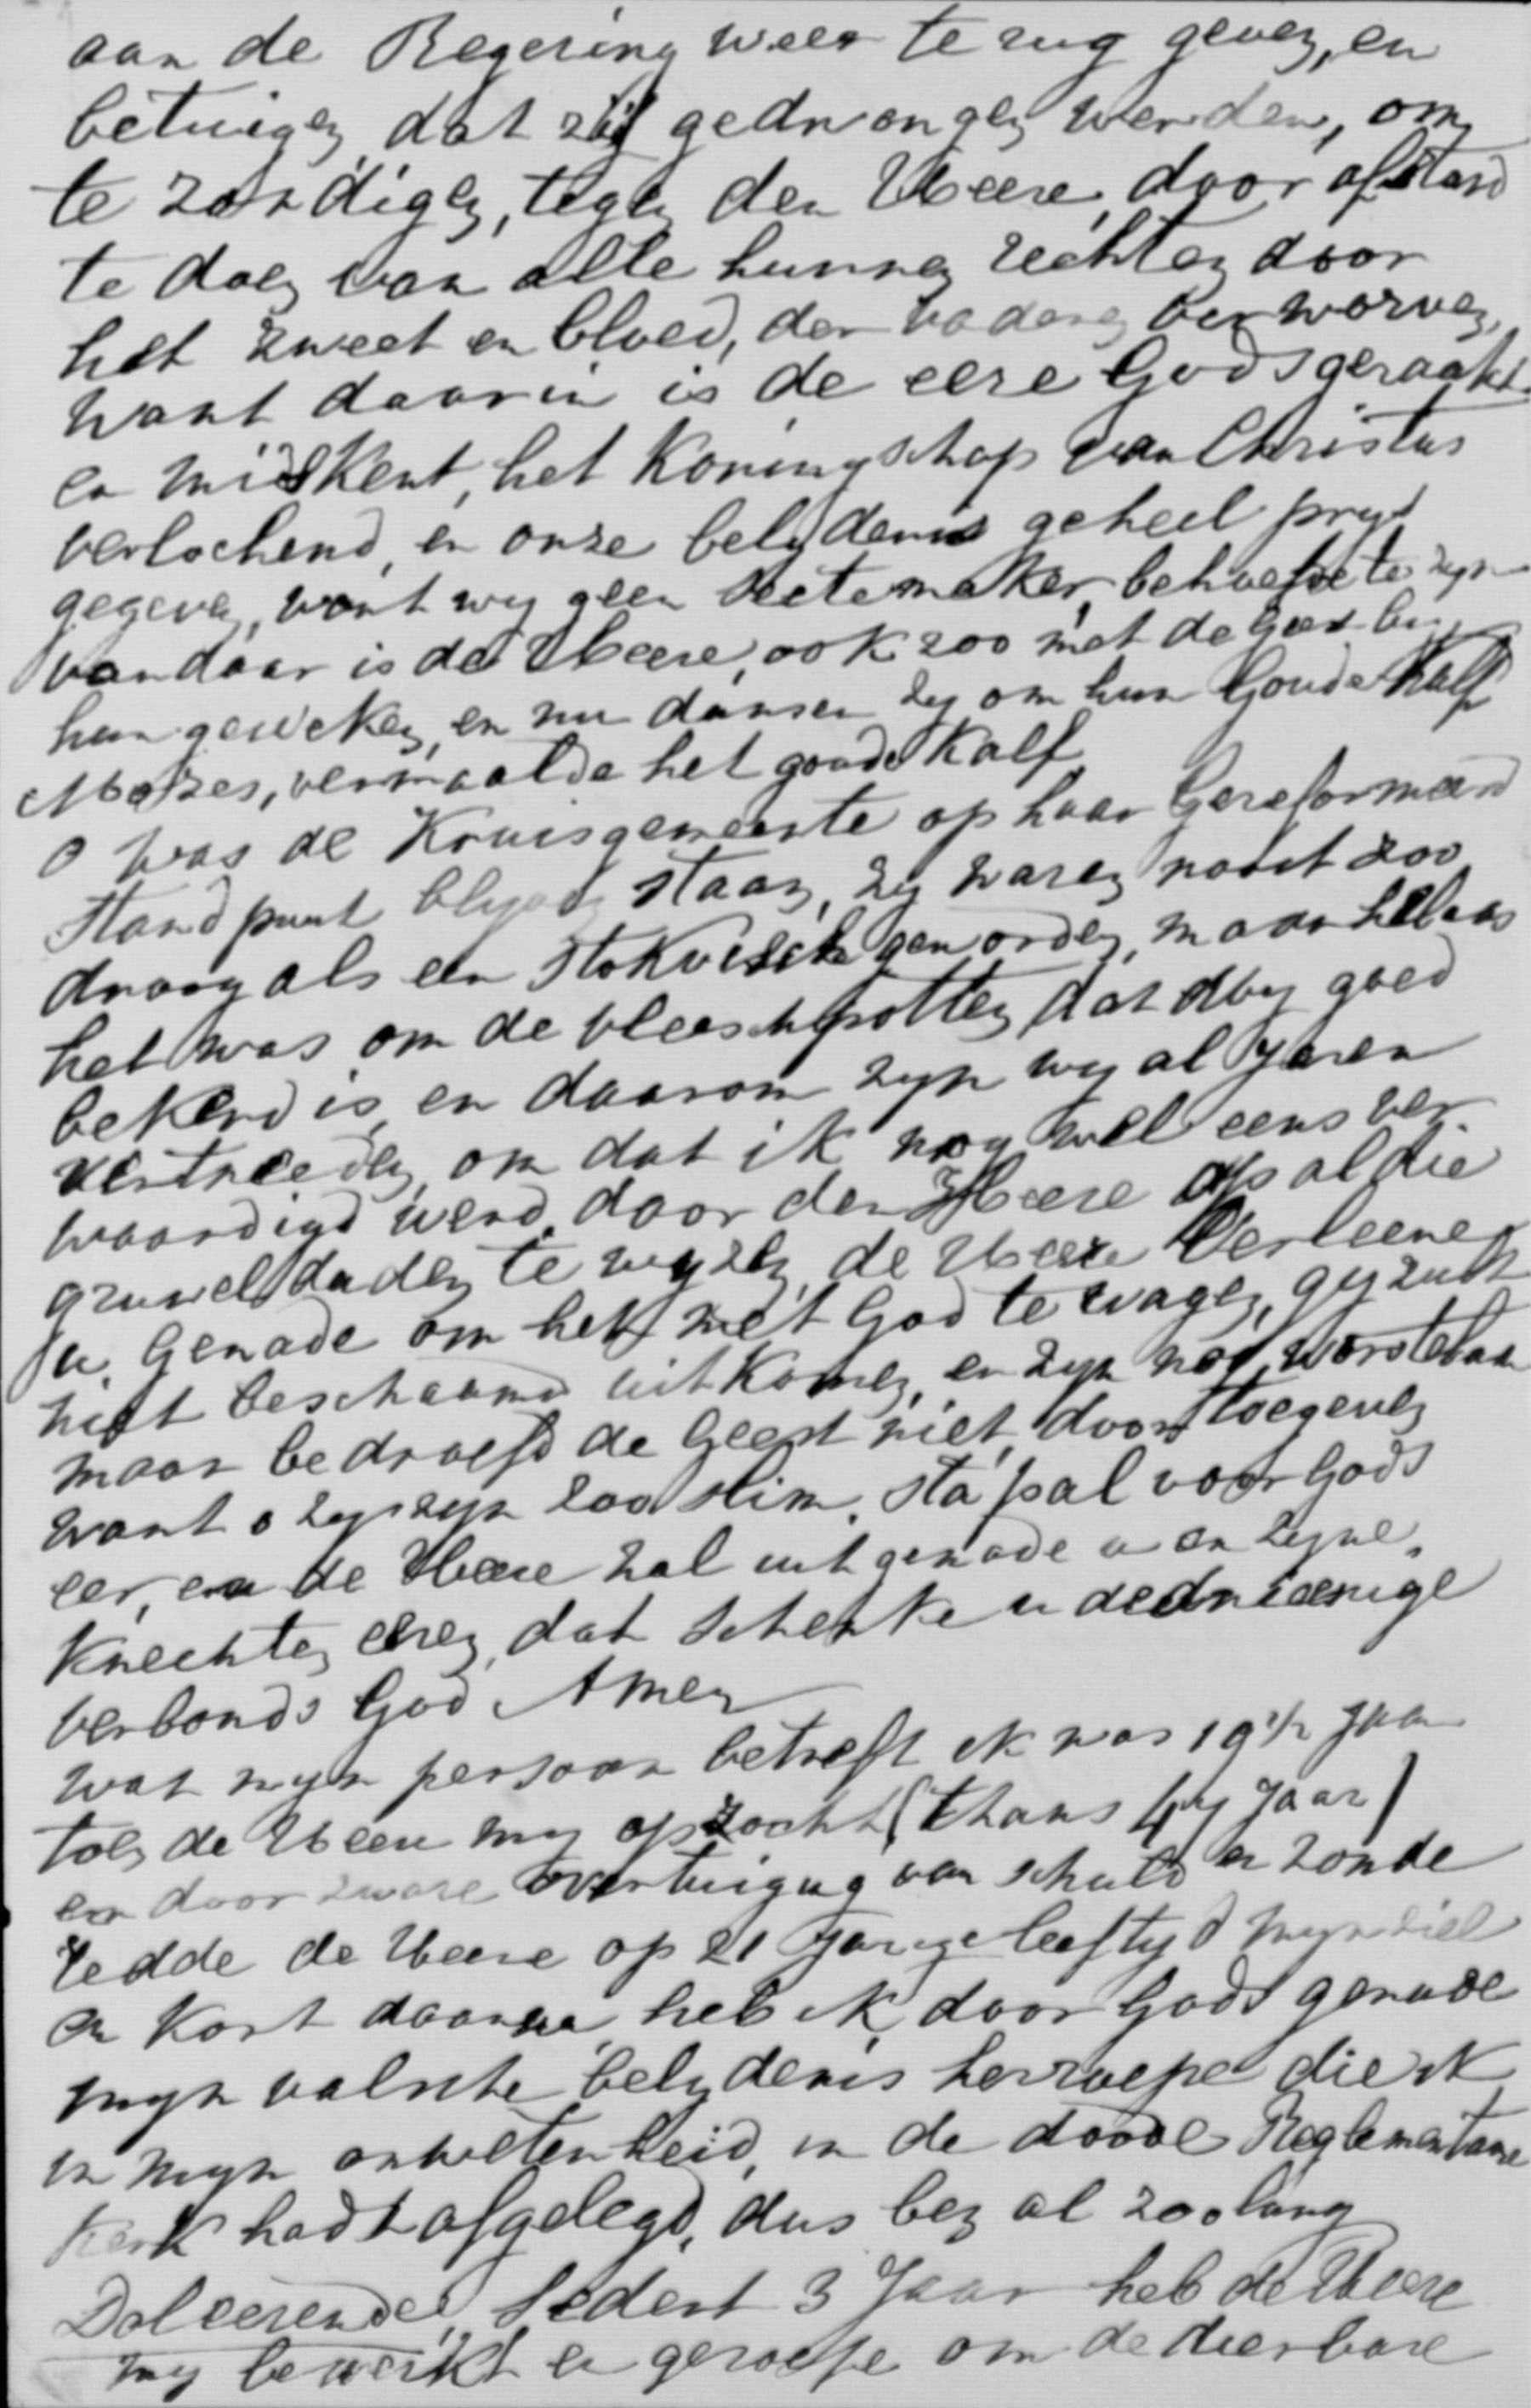 aan de Regering weer te rug geven, en
betuigen dat zij gedwongen werden, om
te zondigen, tegen den Heere, door afstand
te doen van alle hunne rechten door
het zweet en bloed, der vaderen verworven,
want daarin is de eere Gods geraakt
en miskent, het Koningschap van Christus
verlochend, en onze belydenis geheel prys
gegeven, want wy geen Sectemaker behoefde te zyn
van daar is de Heere, ook zoo met de Gods by
hun geweken, en nu dansen zy om hun Goude Kalf
Mozes, vermaalde het goude Kalf
o was de Kruisgemeente op haar Gereformeerd
Standpunt blyven staan, zy waren nooit zoo
droog als een stokvisch geworden, maar helaas
het was om de vleeschpotten, dat by goed
bekend is, en daarom zyn wy al Jaren
vertreeden, om dat ik nog wel eens ver
waardigd werd, door den Heere op al die
gruweldaden te wyzen, de Heere Verleene
u, Genade om het met God te wagen, gy zult
niet beschaamd uitkomen, en zyn nog worstelaar
maar bedroefd de Geest niet, door toegeven
want o zy zyn zoo slim, sta pal voor Gods
eer, en de Heere zal uit genade u en zyne
Knechten eren, dat schenke u de drieenige
verbonds God Amen
wat myn persoon betreft ik was 19 1/2 Jaar
toen de Heere my opzocht (thans 44 Jaar)
en door zware overtuiging van schuld en zonde
redde de Heere op 21 Jarige leeftyd myn ziel
en kort daarna heb ik door Gods genade
myn valsche belydenis herroepe die ik
in myn onwetenheid, in de doode Reglementaire
Kerk hadt afgelegd, dus ben al zoolang
Doleerende, Sedert 3 Jaar heb de Heere
my bewerkt en geroepe om de dierbare